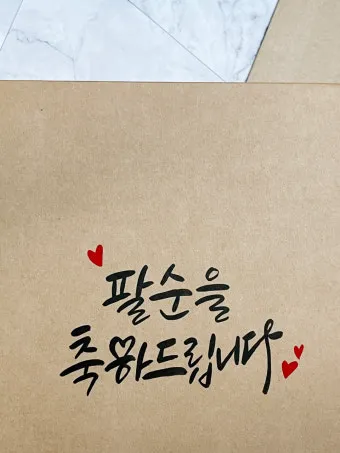 팔순을
축하드립니다